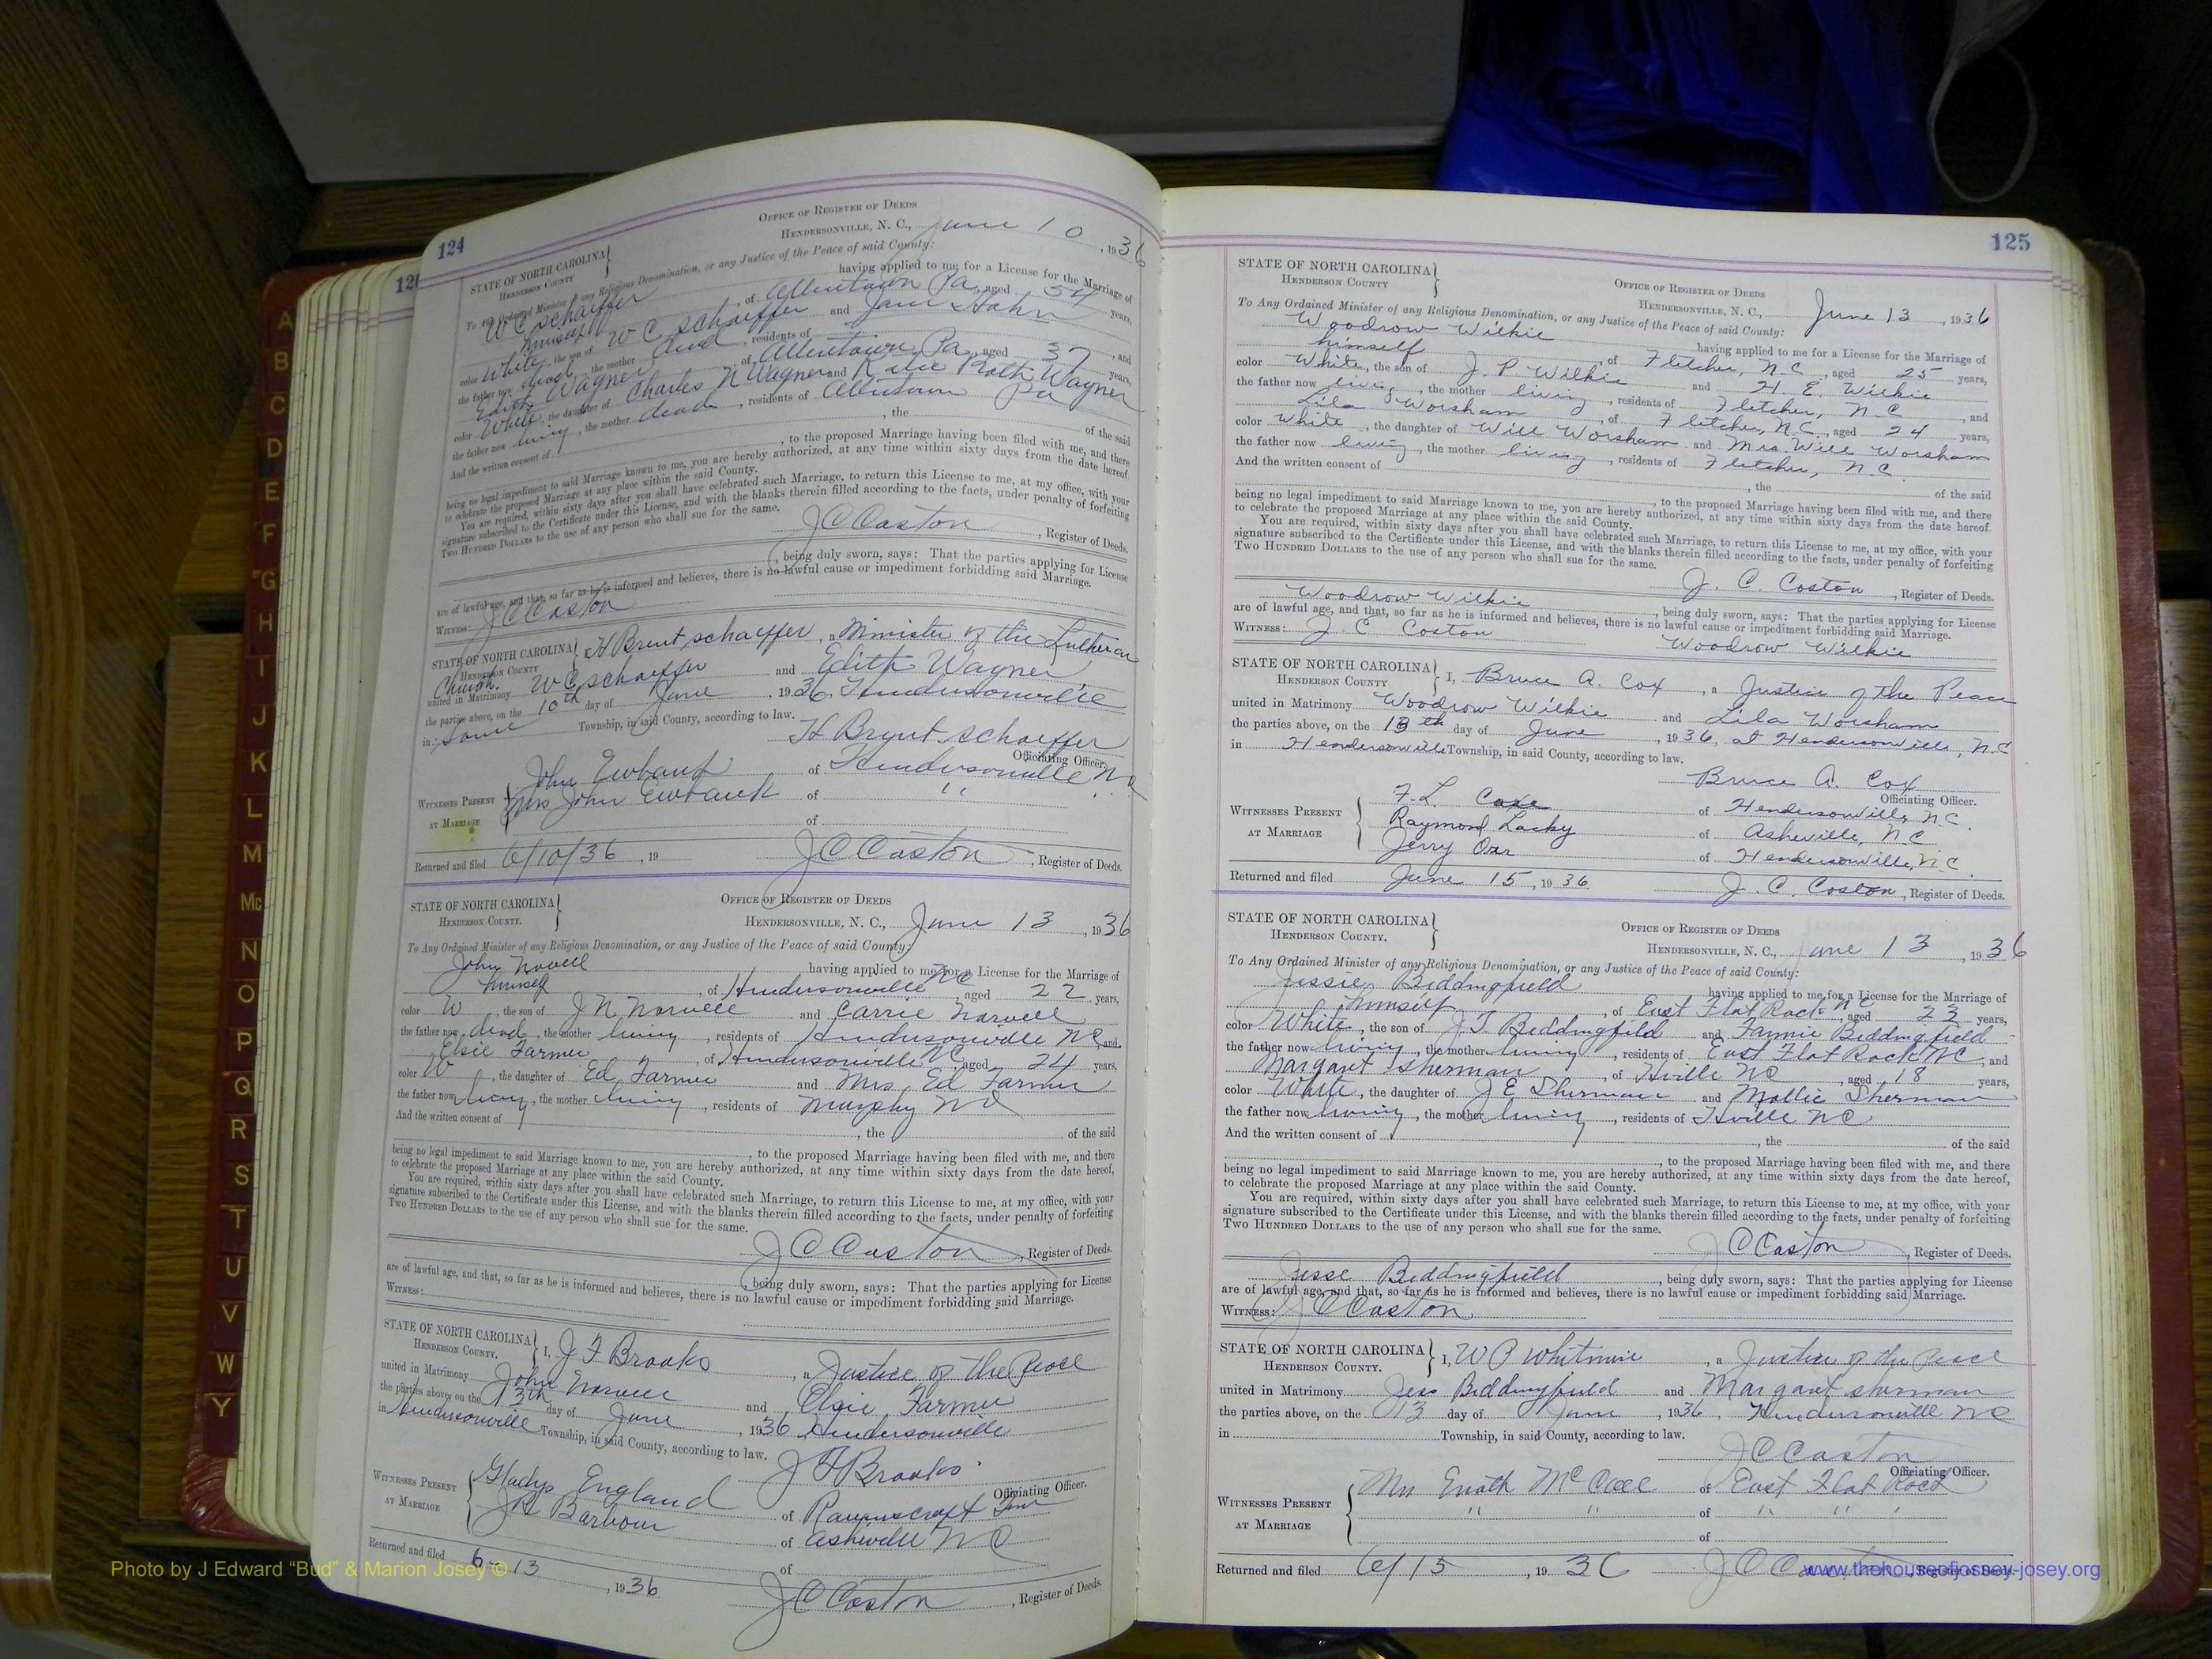 124
OFFICE OF REGISTER OF DEEDS
HENDERSONVILLE, N. C., June 10, 1936
STATE OF NORTH CAROLINA
HENDERSON COUNTY
To Any Ordained Minister of any Religious Denomination, or any Justice of the Peace of said County:
W C Schaeffer having applied to me for a License for the Marriage of
himself, of Allentown Pa, aged 54 years,
color White, the son of W C Schaeffer and Jane Hahn
the father now dead, the mother dead, residents of , and
Edith Wagner of Allentown Pa, aged 37 years,
color White, the daughter of Charles N Wagner and Katie Roth Wagner
the father now living, the mother dead, residents of Allentown Pa
And the written consent of , the of the said
, to the proposed Marriage having been filed with me, and there
being no legal impediment to said Marriage known to me, you are hereby authorized, at any time within sixty days from the date hereof
to celebrate the proposed Marriage at any place within the said County.
You are required, within sixty days after you shall have celebrated such Marriage, to return this License to me, at my office, with your
signature subscribed to the Certificate under this License, and with the blanks therein filled according to the facts, under penalty of forfeiting
TWO HUNDRED DOLLARS to the use of any person who shall sue for the same.
J C Coston, Register of Deeds.
, being duly sworn, says: That the parties applying for License
are of lawful age, and that, so far as he is informed and believes, there is no lawful cause or impediment forbidding said Marriage.
WITNESS: J C Coston
STATE OF NORTH CAROLINA
HENDERSON COUNTY
H Brent Schaeffer, a Minister of the Lutheran
Church.
united in Matrimony W C Schaeffer and Edith Wagner
the parties above, on the 10th day of June, 1936, Hendersonville
in same Township, in said County, according to law.
H Brent Schaeffer
Officiating Officer.
WITNESSES PRESENT AT MARRIAGE
John Ewbank of Hendersonville N C
Mrs John Ewbank of " "
of
Returned and filed 6/10/36, 19 J C Coston, Register of Deeds.
STATE OF NORTH CAROLINA
HENDERSON COUNTY.
OFFICE OF REGISTER OF DEEDS
HENDERSONVILLE, N. C., June 13, 1936
To Any Ordained Minister of any Religious Denomination, or any Justice of the Peace of said County:
John Norvell having applied to me for a License for the Marriage of
himself, of Hendersonville NC aged 22 years,
color W, the son of J N Norvell and Carrie Norvell
the father now dead, the mother living, residents of Hendersonville NC, and
Elsie Farmer, of Hendersonville NC aged 24 years,
color W, the daughter of Ed Farmer and Mrs. Ed Farmer
the father now living, the mother living, residents of Murphy NC
And the written consent of , the of the said
, to the proposed Marriage having been filed with me, and there
being no legal impediment to said Marriage known to me, you are hereby authorized, at any time within sixty days from the date hereof,
to celebrate the proposed Marriage at any place within the said County.
You are required, within sixty days after you shall have celebrated such Marriage, to return this License to me, at my office, with your
signature subscribed to the Certificate under this License, and with the blanks therein filled according to the facts, under penalty of forfeiting
TWO HUNDRED DOLLARS to the use of any person who shall sue for the same.
J C Coston, Register of Deeds.
, being duly sworn, says: That the parties applying for License
are of lawful age, and that, so far as he is informed and believes, there is no lawful cause or impediment forbidding said Marriage.
WITNESS:
STATE OF NORTH CAROLINA
HENDERSON COUNTY.
I, J F Brooks, a Justice of the Peace
united in Matrimony John Norvell and Elsie Farmer
the parties above, on the 13th day of June, 1936 Hendersonville
in Hendersonville Township, in said County, according to law.
J F Brooks
Officiating Officer.
WITNESSES PRESENT AT MARRIAGE
Gladys England of
J R Barbour of Asheville N C
of
Returned and filed 6-13, 1936 J C Coston, Register of Deeds.
125
STATE OF NORTH CAROLINA
HENDERSON COUNTY
OFFICE OF REGISTER OF DEEDS
HENDERSONVILLE, N. C., June 13, 1936
To Any Ordained Minister of any Religious Denomination, or any Justice of the Peace of said County:
Woodrow Wilkie having applied to me for a License for the Marriage of
himself, of Fletcher, N.C., aged 25 years,
color White, the son of J. P. Wilkie and H. E. Wilkie
the father now living, the mother living, residents of Fletcher, N.C., and
Lila Worsham, of Fletcher, N.C., aged 24 years,
color White, the daughter of Will Worsham and Mrs. Will Worsham
the father now living, the mother living, residents of Fletcher, N.C.
And the written consent of , the of the said
, to the proposed Marriage having been filed with me, and there
being no legal impediment to said Marriage known to me, you are hereby authorized, at any time within sixty days from the date hereof.
to celebrate the proposed Marriage at any place within the said County.
You are required, within sixty days after you shall have celebrated such Marriage, to return this License to me, at my office, with your
signature subscribed to the Certificate under this License, and with the blanks therein filled according to the facts, under penalty of forfeiting
TWO HUNDRED DOLLARS to the use of any person who shall sue for the same.
J. C. Coston, Register of Deeds.
Woodrow Wilkie, being duly sworn, says: That the parties applying for License
are of lawful age, and that, so far as he is informed and believes, there is no lawful cause or impediment forbidding said Marriage.
WITNESS: J. C. Coston Woodrow Wilkie
STATE OF NORTH CAROLINA
HENDERSON COUNTY
I, Bruce A. Cox, a Justice of the Peace
united in Matrimony Woodrow Wilkie and Lila Worsham
the parties above, on the 13th day of June, 1936, at Hendersonville, N.C.
in Hendersonville Township, in said County, according to law.
Bruce A. Cox
Officiating Officer.
WITNESSES PRESENT AT MARRIAGE
F. L. of Hendersonville, N.C.
Raymond Lasky of Asheville, N.C.
Jerry Orr of Hendersonville, N.C.
Returned and filed June 15, 1936 J. C. Coston, Register of Deeds.
STATE OF NORTH CAROLINA
HENDERSON COUNTY.
OFFICE OF REGISTER OF DEEDS
HENDERSONVILLE, N. C., June 13, 1936
To Any Ordained Minister of any Religious Denomination, or any Justice of the Peace of said County:
Jessie Beddingfield having applied to me for a License for the Marriage of
himself, of East Flat Rock NC, aged 23 years,
color White, the son of J. T. Beddingfield and Fannie Beddingfield
the father now living, the mother living, residents of East Flat Rock NC, and
Margant Sherman, of Hville NC, aged 18 years,
color White, the daughter of J E Sherman and Mollie Sherman
the father now living, the mother living, residents of Hville NC
And the written consent of , the of the said
, to the proposed Marriage having been filed with me, and there
being no legal impediment to said Marriage known to me, you are hereby authorized, at any time within sixty days from the date hereof,
to celebrate the proposed Marriage at any place within the said County.
You are required, within sixty days after you shall have celebrated such Marriage, to return this License to me, at my office, with your
signature subscribed to the Certificate under this License, and with the blanks therein filled according to the facts, under penalty of forfeiting
TWO HUNDRED DOLLARS to the use of any person who shall sue for the same.
J C Coston, Register of Deeds.
Jesse Beddingfield, being duly sworn, says: That the parties applying for License
are of lawful age, and that, so far as he is informed and believes, there is no lawful cause or impediment forbidding said Marriage.
WITNESS: J C Coston
STATE OF NORTH CAROLINA
HENDERSON COUNTY.
I, W P Whitmire, a Justice of the Peace
united in Matrimony Jess Biddingfield and Margant Sherman
the parties above, on the 13 day of June, 1936, Hendersonville NC
in Township, in said County, according to law.
J C Coston
Officiating Officer.
WITNESSES PRESENT AT MARRIAGE
McCall of East Flat Rock
" " of " " "
of
Returned and filed 6/15, 1936 Register of Deeds.
A
B
C
D
E
F
G
H
I
J
K
L
M
Mc
N
O
P
Q
R
S
T
U
V
W
Y
Photo by J Edward “Bud” & Marion Josey ©
www.thehouseofjossey-josey.org